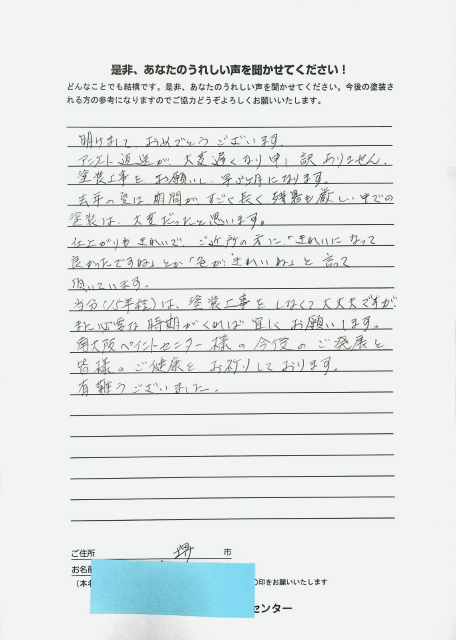 是非、あなたのうれしい声を聞かせてください！
どんなことでも結構です。是非、あなたのうれしい声を聞かせてください。今後の塗装さ
れる方の参考になりますのでご協力どうぞよろしくお願いいたします。
明けまして おめでとうございます。
アンケート返送が、大変遅くなり申し訳ありません。
塗装工事を お願いし、早ヶ月になります。
去年の夏は期間が すごく長く 残暑も厳しい中での
塗装は、大変だったと思います。
仕上がりもきれいで、ご近所の方に「きれいになって
良かったですね」とか「色がきれいね」と言って
頂いています。
当分(15年程)は、塗装工事をしなくて大丈夫ですが
また必要な時期がくれば宜しくお願いします。
南大阪ペイントセンター様の今後のご発展と
皆様のご健康をお祈りしております。
有難うございました。
ご住所 堺 市
お名前
（本名 の印をお願いいたします
センター